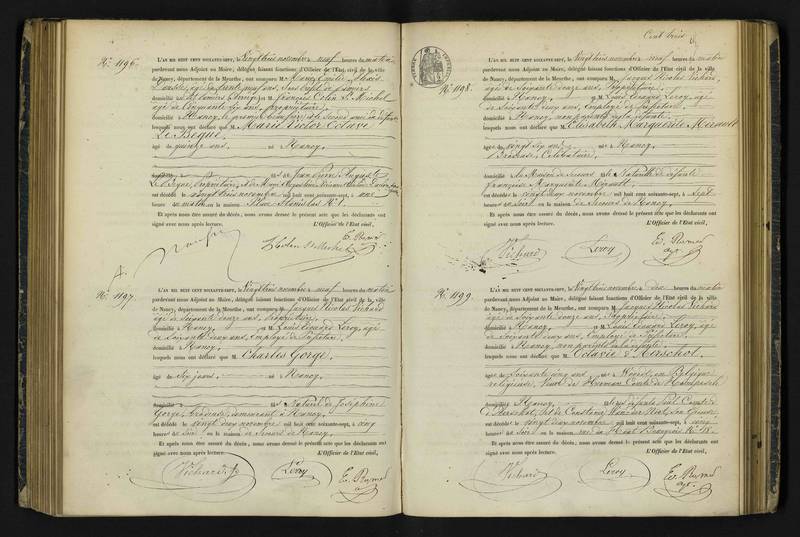 N.° 1196.
L'AN MIL HUIT CENT SOIXANTE-SEPT, le Vingttrois novembre neuf heures du matin
pardevant nous Adjoint au Maire, délégué faisant fonctions d'Officier de l'Etat civil de la ville
de Nancy, département de la Meurthe, ont comparu M.
âgé de trente neuf ans,
domicilié M. François Colin St Michel
âgé de Cinquante six ans, propriétaire,
domicilié à Nancy, le premier le second
lesquels nous ont déclaré que M. Marie Victor Octave
Le Bègue,
âgé de quinze ans né à Nancy,
fils de Jean Pierre Auguste
Le Bègue, propriétaire, et de
est décédé le vingttrois novembre mil huit cent soixante-sept, à une
heure du matin en la maison Place Stanislas N.° 1.
Et après nous être assuré du décès, nous avons dressé le présent acte que les déclarants ont
signé avec nous après lecture. L'Officier de l'Etat civil,
N.° 1197.
L'AN MIL HUIT CENT SOIXANTE-SEPT, le Vingttrois novembre neuf heures du matin
pardevant nous Adjoint au Maire, délégué faisant fonctions d'Officier de l'Etat civil de la ville
de Nancy, département de la Meurthe, ont comparu M. Jacques Nicolas Vichard
âgé de Soixante onze ans, Propriétaire,
domicilié à Nancy, et M. Louis Léonard Leroy, âgé
de Soixante deux ans, Employé de Préfecture,
domicilié à Nancy,
lesquels nous ont déclaré que M. Charles Gorge,
âgé de Six jours, né à Nancy,
fils Naturel de Joséphine
Gorge, brodeuse, demeurant à Nancy,
est décédé le vingt deux novembre mil huit cent soixante-sept, à cinq
heures du Soir en la maison de Secours de Nancy.
Et après nous être assuré du décès, nous avons dressé le présent acte que les déclarants ont
signé avec nous après lecture. L'Officier de l'Etat civil,
Vichard Leroy
Cent trois
N.° 1198.
L'AN MIL HUIT CENT SOIXANTE-SEPT, le Vingttrois novembre neuf heures du matin
pardevant nous Adjoint au Maire, délégué faisant fonctions d'Officier de l'Etat civil de la ville
de Nancy, département de la Meurthe, ont comparu M. Jacques Nicolas Vichard,
âgé de Soixante onze ans, Propriétaire,
domicilié à Nancy, et M. Louis Léonard Leroy, âgé
de Soixante deux ans, Employé de Préfecture,
domicilié à Nancy, non parents de la défunte,
lesquels nous ont déclaré que M. Elisabeth Marguerite
âgée de vingt six ans née à Nancy,
Brodeuse, Célibataire,
domiciliée de Maison de Secours fille Naturelle de défunte
Françoise Marguerite
est décédée le vingt deux novembre mil huit cent soixante-sept, à Sept
heures du Soir en la maison de Secours de Nancy.
Et après nous être assuré du décès, nous avons dressé le présent acte que les déclarants ont
signé avec nous après lecture. L'Officier de l'Etat civil,
Vichard Leroy
N.° 1199.
L'AN MIL HUIT CENT SOIXANTE-SEPT, le Vingttrois novembre à dix heures du matin
pardevant nous Adjoint au Maire, délégué faisant fonctions d'Officier de l'Etat civil de la ville
de Nancy, département de la Meurthe, ont comparu M. Jacques Nicolas Vichard
âgé de Soixante onze ans, Propriétaire,
domicilié à Nancy, et M. Louis Léonard Leroy, âgé
de Soixante deux ans, Employé de Préfecture,
domicilié à Nancy, non parents de la défunte,
lesquels nous ont déclaré que M. Octavie
âgée de Soixante cinq ans née à en Belgique
religieuse, Veuve de Comte de
domiciliée à Nancy, fille de défunts
de Constance
est décédée le vingt deux novembre mil huit cent soixante-sept, à cinq
heures du Soir en la maison rue
Et après nous être assuré du décès, nous avons dressé le présent acte que les déclarants ont
signé avec nous après lecture. L'Officier de l'Etat civil,
Vichard Leroy